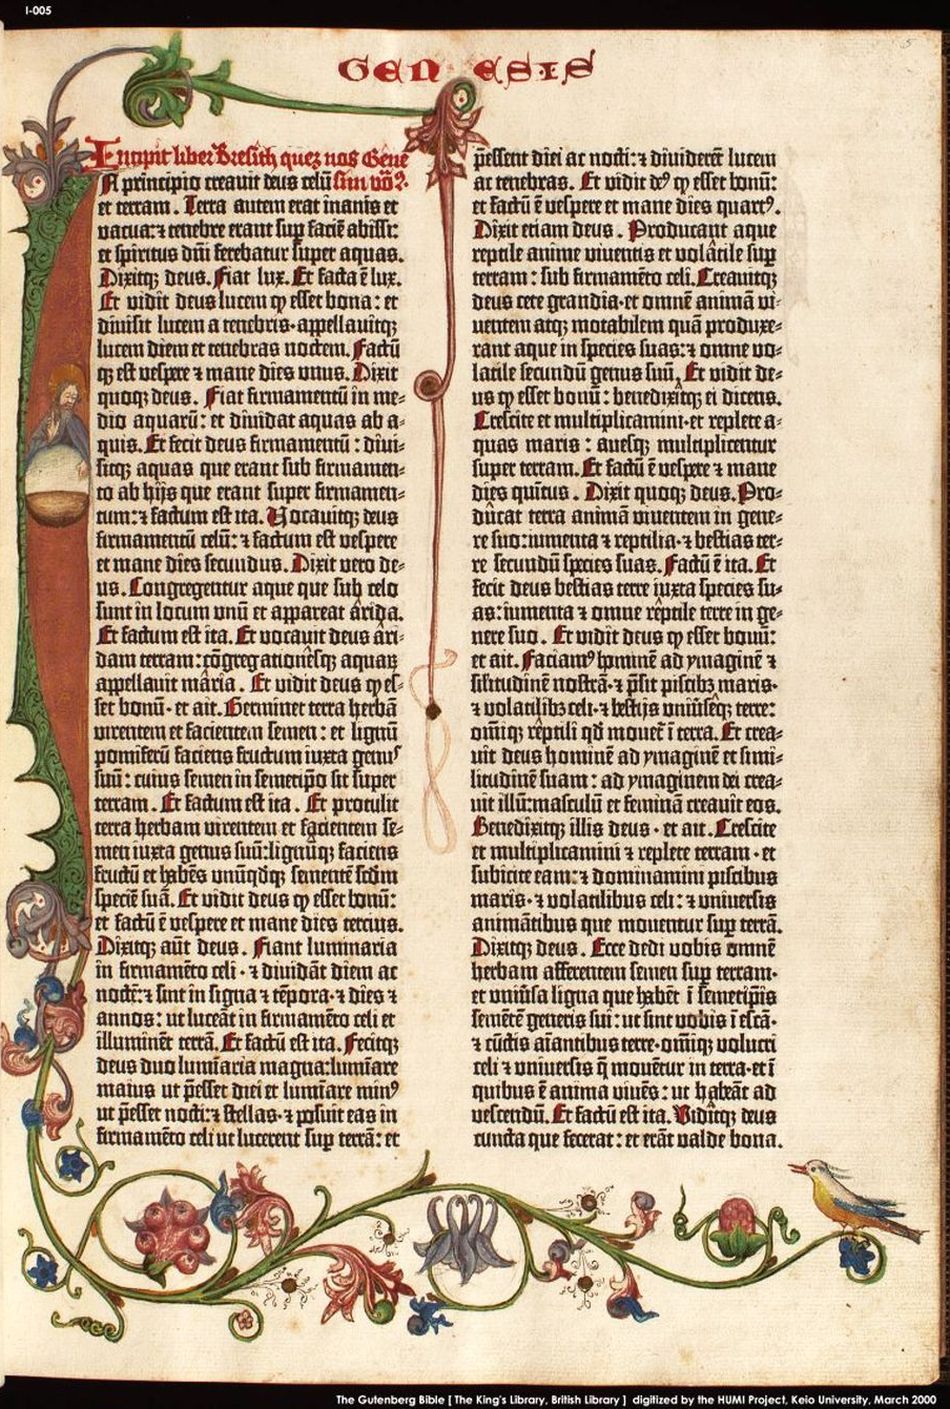 I-005
GENESIS
Incipit liber Bresith quez nos Gene
sim voc̄.
In principio creavit deus celū
et terram. Terra autem erat inanis et
vacua: ⁊ tenebre erant sup faciē abissi:
et spiritus dn̄i ferebatur super aquas.
Dixitqꝫ deus. Fiat lux. Et facta ē lux.
Et vidit deus lucem ꝙ esset bona: et
divisit lucem a tenebris· appellavitqꝫ
lucem diem et tenebras noctem. Factū
qꝫ est vespere ⁊ mane dies unus. Dixit
quoqꝫ deus. Fiat firmamentū in me⸗
dio aquarū: et dividat aquas ab a⸗
quis. Et fecit deus firmamentū: divi⸗
sitqꝫ aquas que erant sub firmamen⸗
to ab hijs que erant super firmamen⸗
tum: ⁊ factum est ita. Vocavitqꝫ deus
firmamentū celū: ⁊ factum est vespere
et mane dies secundus. Dixit vero de⸗
us. Congregentur aque que sub celo
sunt in locum unū et appareat arida.
Et factum est ita. Et vocavit deus ari⸗
dam terram: cōgregationesqꝫ aquaꝝ
appellavit maria. Et vidit deus ꝙ es⸗
set bonū· et ait. Germinet terra herbā
virentem et facientem semen: et lignū
pomiferū faciens fructum iuxta genꝰ
suū: cuius semen in semetipo sit super
terram. Et factum est ita. Et protulit
terra herbam virentem et facientem se⸗
men iuxta genus suū: lignūqꝫ faciens
fructū et habēs unūqdqꝫ sementē scdm
speciē suā. Et vidit deus ꝙ esset bonū:
et factū ē vespere et mane dies tercius.
Dixitqꝫ aūt deus. Fiant luminaria
in firmamēto celi· ⁊ dividāt diem ac
noctē: ⁊ sint in signa ⁊ tēpora· ⁊ dies ⁊
annos: ut luceāt in firmamēto celi et
illuminēt terrā. Et factū est ita. Fecitqꝫ
deus duo luminaria magna: luminare
maius ut p̄esset diei et luminare minꝰ
ut p̄esset nocti: ⁊ stellas· ⁊ posuit eas in
firmamēto celi ut lucerent sup terrā: et
p̄essent diei ac nocti: ⁊ dividerēt lucem
ac tenebras. Et vidit deꝰ ꝙ esset bonū:
et factū ē vespere et mane dies quartꝰ.
Dixit etiam deus. Producant aque
reptile anime viventis et volatile sup
terram: sub firmamēto celi. Creavitqꝫ
deus cete grandia· et omnē animā vi⸗
ventem atqꝫ motabilem quā produxe⸗
rant aque in species suas: ⁊ omne vo⸗
latile secundū genus suū. Et vidit de⸗
us ꝙ esset bonū: benedixitqꝫ ei dicens.
Crescite et multiplicamini· et replete a⸗
quas maris: avesqꝫ multiplicentur
super terram. Et factū ē vespere ⁊ mane
dies quintus. Dixit quoqꝫ deus. Pro⸗
ducat terra animā viventem in gene⸗
re suo: iumenta ⁊ reptilia· ⁊ bestias ter⸗
re secundū species suas. Factū ē ita. Et
fecit deus bestias terre iuxta species su⸗
as: iumenta ⁊ omne reptile terre in ge⸗
nere suo. Et vidit deus ꝙ esset bonū:
et ait. Faciamꝰ hominē ad ymaginē ⁊
silitudinē nostrā· ⁊ p̄sit piscibꝫ maris·
⁊ volatilibꝫ celi· ⁊ bestijs uniūseqꝫ terre:
om̄iqꝫ reptili qd movet̄ ī terra. Et crea⸗
vit deus hominē ad ymaginē et simi⸗
litudinē suam: ad ymaginem dei crea⸗
vit illū: masculū et feminā creavit eos.
Benedixitqꝫ illis deus· et ait. Crescite
et multiplicamini ⁊ replete terram· et
subicite eam: ⁊ dominamini piscibus
maris· ⁊ volatilibus celi: ⁊ universis
animātibus que moventur sup terrā.
Dixitqꝫ deus. Ecce dedi vobis omnē
herbam afferentem semen sup terram·
et univ̄sa ligna que habēt ī semetip̄is
semētē generis sui: ut sint vobis ī escā·
⁊ cūctis aīantibus terre· om̄iqꝫ volucri
celi ⁊ universis q̄ movētur in terra· et ī
quibus ē anima vivēs: ut habeāt ad
vescendū. Et factū est ita. Viditqꝫ deus
cuncta que fecerat: et erāt valde bona.
The Gutenberg Bible [ The King's Library, British Library ] digitized by the HUMI Project, Keio University, March 2000